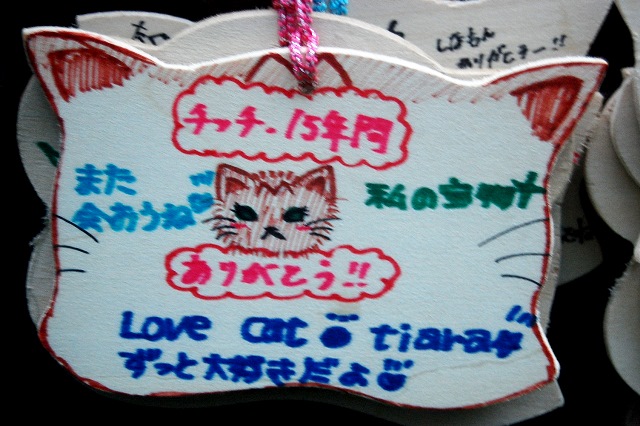 チッチ・15年間
また
会おうね
私の宝物
ありがとう!!
Love cat tiara
ずっと大好きだよ
ありがとう!!